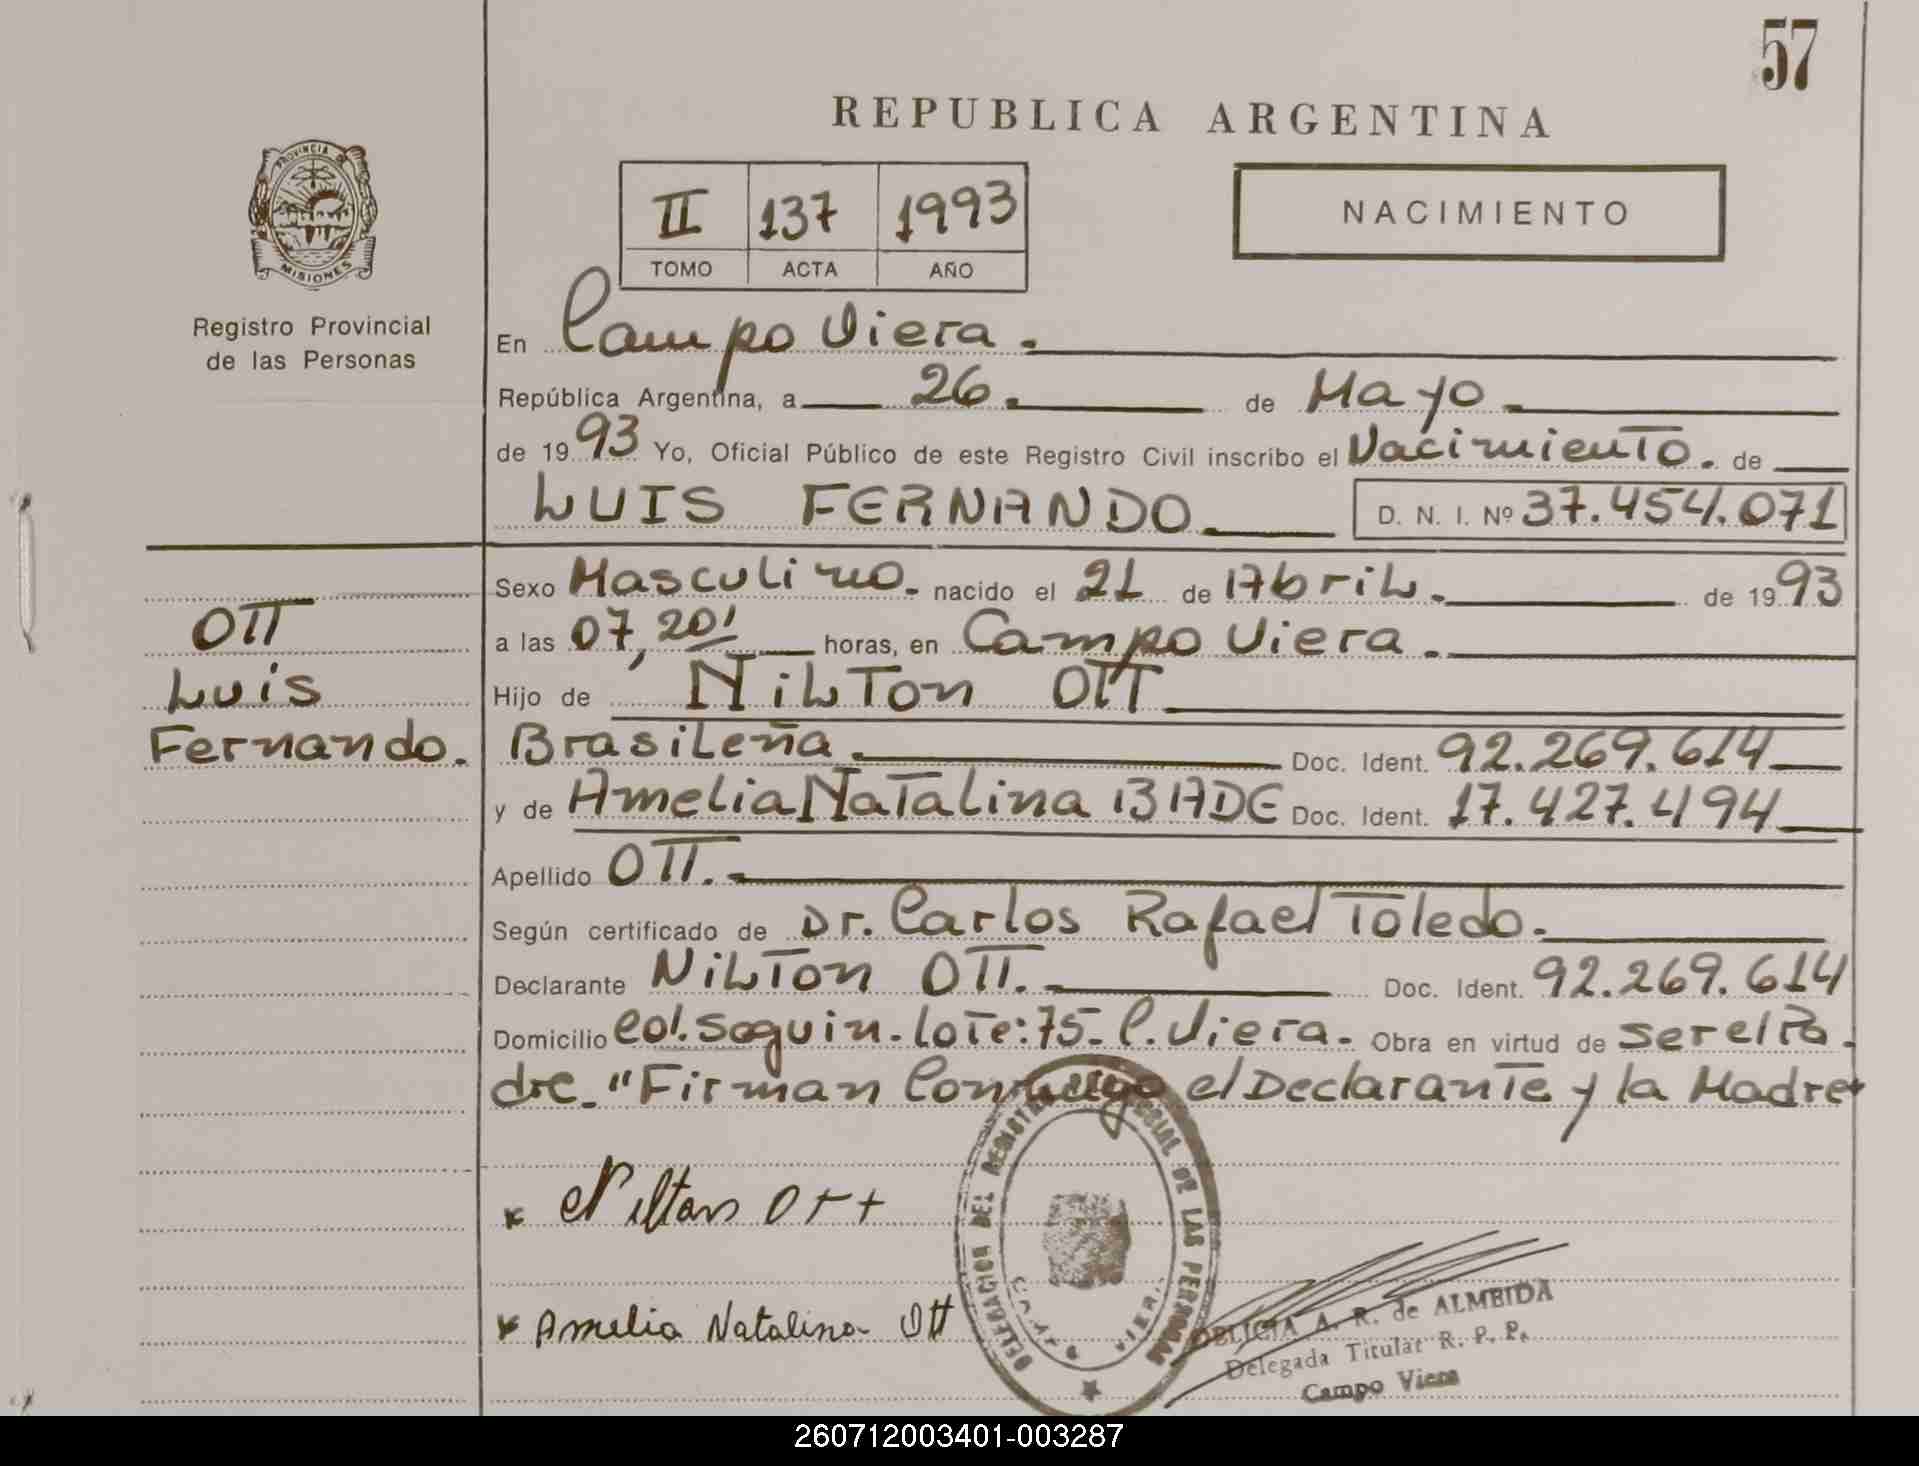 57
REPUBLICA ARGENTINA
PROVINCIA DE
MISIONES
Registro Provincial
de las Personas
II 137 1993
TOMO ACTA AÑO
NACIMIENTO
En Campo Viera.
República Argentina, a 26. de Mayo
de 1993 Yo, Oficial Público de este Registro Civil inscribo el Nacimiento. de
LUIS FERNANDO D. N. I. Nº 37.454.071
OTT
Luis
Fernando.
Sexo Masculino. nacido el 21 de Abril. de 1993
a las 07,20' horas, en Campo Viera.
Hijo de Nilton OTT
Brasileña Doc. Ident. 92.269.614
y de Amelia Natalina BADE Doc. Ident. 17.427.494
Apellido OTT.
Según certificado de Dr. Carlos Rafael Toledo.
Declarante Nilton OTT. Doc. Ident. 92.269.614
Domicilio Col. Seguin. Lote: 75- C. Viera. Obra en virtud de ser el Pa
dre. "Firman Conmigo el Declarante y la Madre
x Nilton Ott
x Amelia Natalina Ott
DELEGACION DEL REGISTRO PROVINCIAL DE LAS PERSONAS
CAMPO VIERA
A. R. de ALMEIDA
Delegada Titular R. P. P.
Campo Viera
260712003401-003287